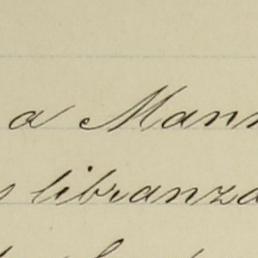 a Mann
s libranza